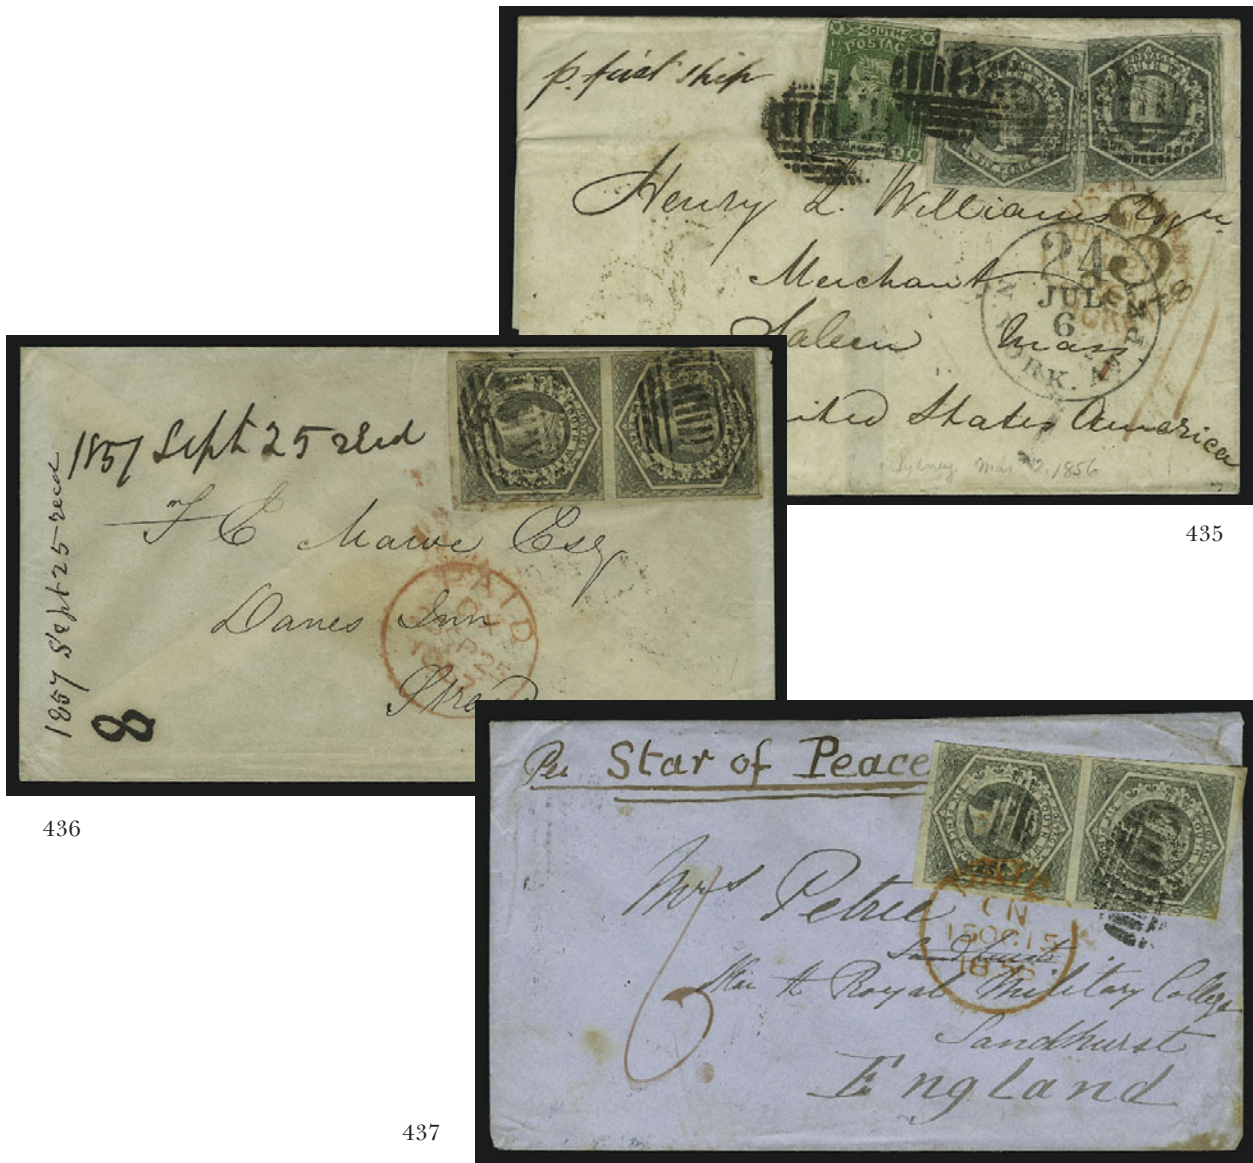 p. first ship
SOUTH
POSTAGE
SOUTH WA
SIX PENCE
Henry L. Williams Esqre
Merchant
Salem Mass
United States America
24
3
JUL
6
N. YORK. AM. PKT
Sydney Mar 12. 1856
435
1857 Sept 25 recd
1857 Sept 25 recd
F C Mawe Esq
Danes Inn
Strand
PAID
SP 25
8
436
Per Star of Peace
Mrs Petrie
Sandhurst
Royal Military College
Sandhurst
England
PAID
CN
15 OC 15
1856
6
437